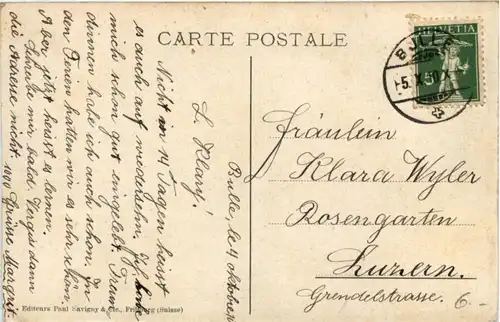 CARTE POSTALE
HELVETIA
BULLE
Fräulein
Klara Wyler
Rosengarten
Luzern.
Grendelstrasse.
6.-
Bulle, le 4 Oktober
L. Klary!
Nicht in 14 Tagen heisst
es auch auf wiedersehn. Ich habe
mich schon gut eingelebt.
dinnen habe ich auch schon. In
den Ferien hatten wir es sehr schön.
Aber jetzt heisst es lernen.
Schreibe mir bald. Vergis dann
die Adresse nicht. 1000 Grüsse Margrit.
Editeurs Paul Savigny & Cie., Fribourg (Suisse)